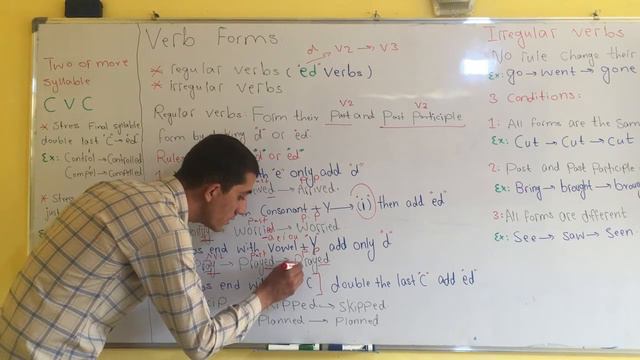 Verb Forms
d
V2 → V3
* regular verbs ("ed" verbs)
* irregular verbs
V2 V2
Regular verbs: Form their Past and Past Participle
form by "d" or "ed"
Rules "d" or "ed"
1 with "e" only add "d"
→ Arrived.
P.P
Consonant + Y → (i) then add "ed"
Past P.P
Worried → Worried
a e i o u
end with Vowel + Y add only "d"
Past P.P
Pray → Prayed → Prayed
end C] double the last "C" add "ed"
→ Skipped
Planned → Planned
Two of more
syllable
C V C
* Stress Final syllable
double last "C → ed"
Ex: Control → Controlled
Compel → Compelled
* Stress
just
Irregular verbs
No rule change their
Ex: go → went → gone
3 Conditions:
1: All forms are the Same
Ex: Cut → Cut → Cut
2: Past and Past Participle
Ex: Bring → brought →
3: All forms are different
Ex: See → saw → Seen